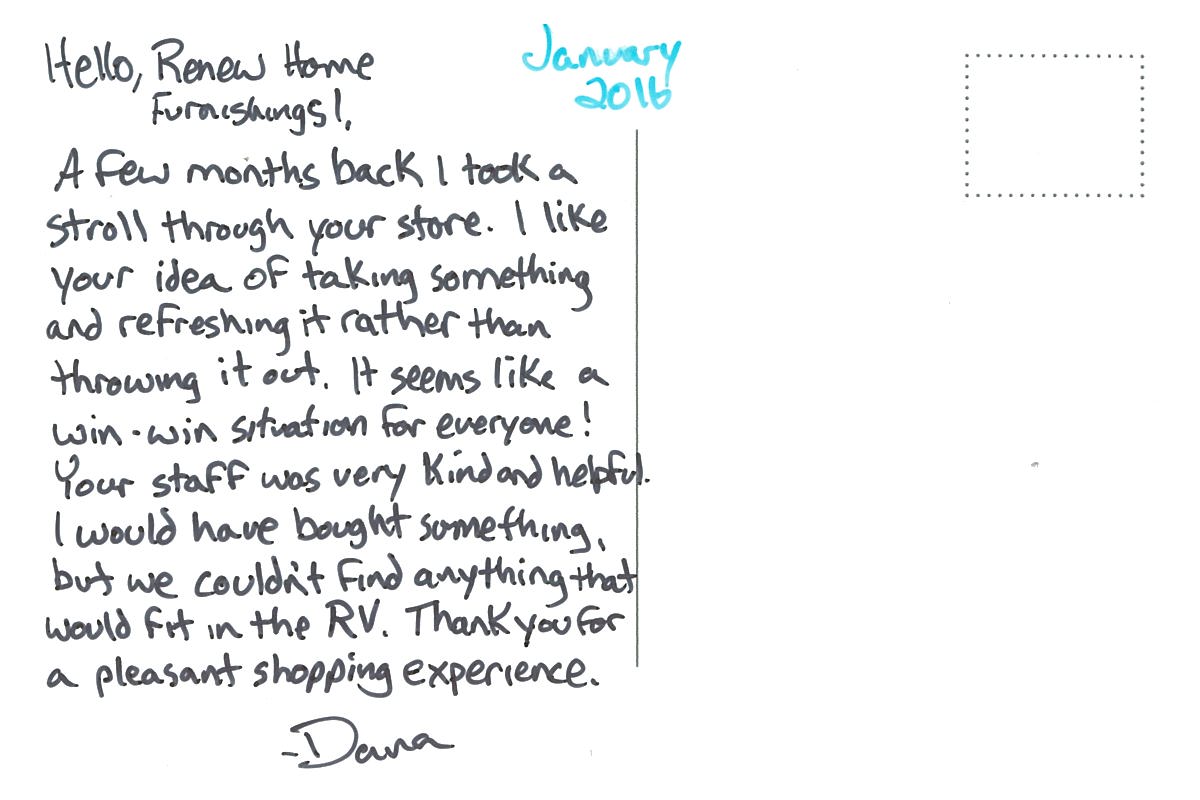 Hello, Renew Home
Furnishings!,
January
2016
A few months back I took a
stroll through your store. I like
your idea of taking something
and refreshing it rather than
throwing it out. It seems like a
win-win situation for everyone!
Your staff was very kind and helpful.
I would have bought something,
but we couldn't find anything that
would fit in the RV. Thank you for
a pleasant shopping experience.
-Dana